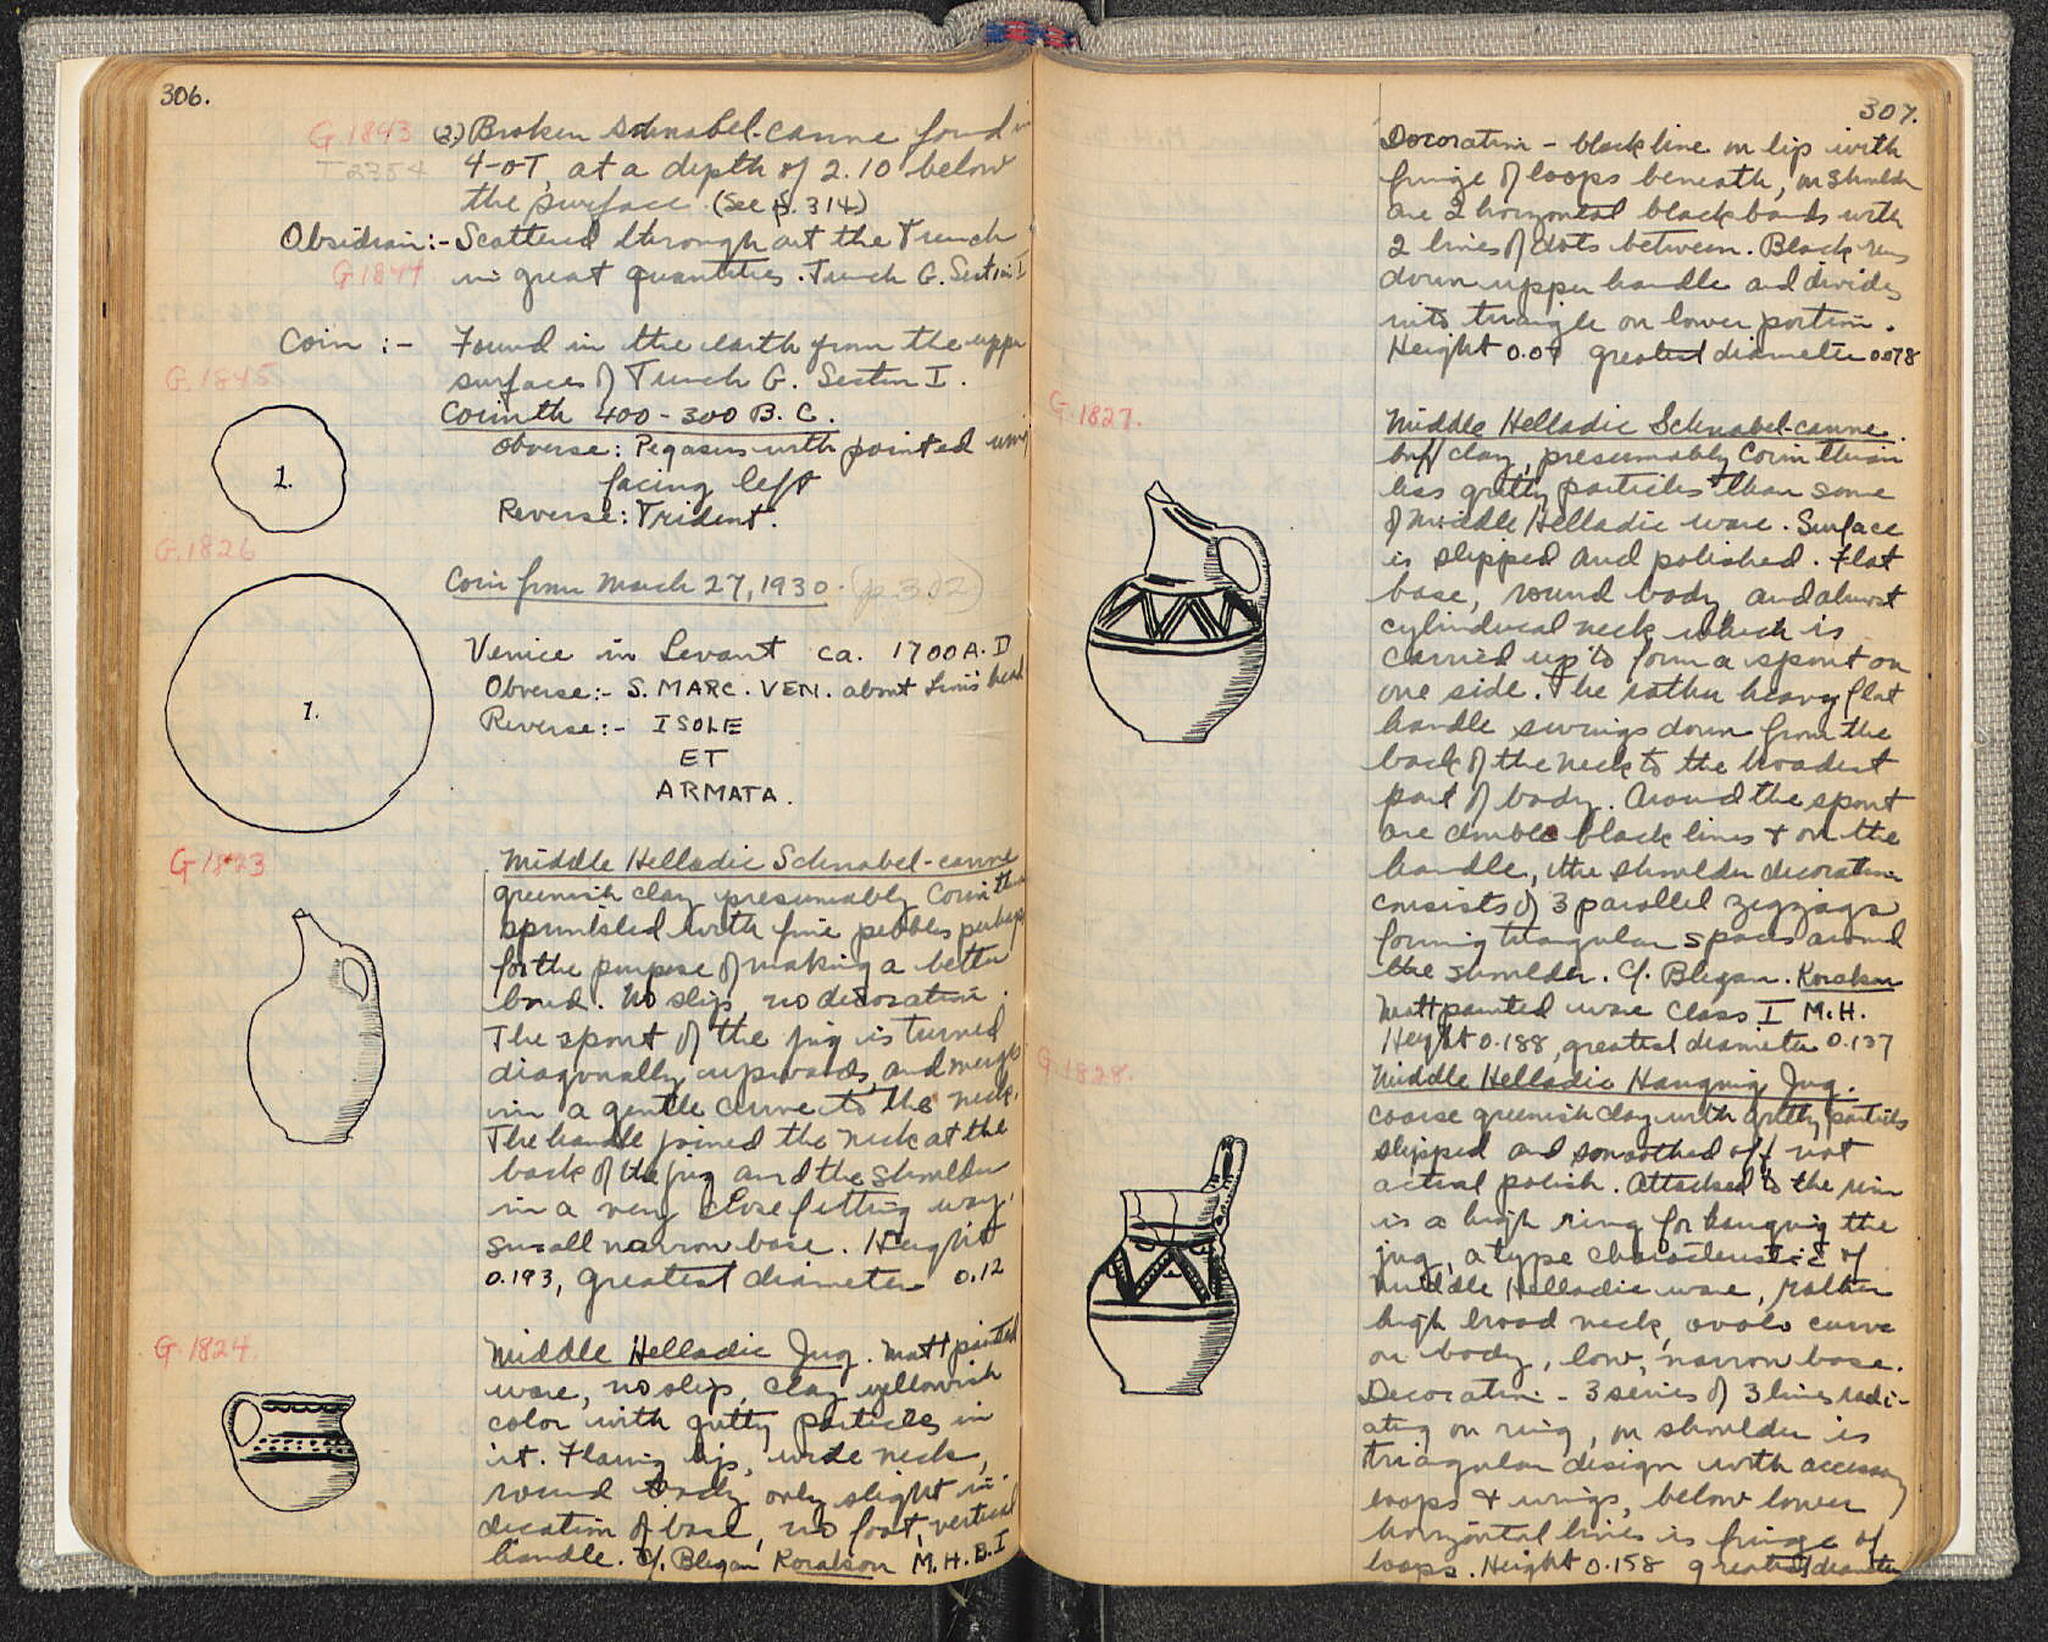 306.
G 1843 (2.) Broken Schnabel-canne found in
T 2354 4-0T, at a depth of 2.10 below
the surface. (See p. 314)
Obsidian:- Scattered throughout the Trench
G 1844 in great quantities. Trench G. Section I
Coin :- Found in the earth from the upper
G. 1845 surfaces of Trench G. Section I.
Corinth 400-300 B.C.
Obverse: Pegasus with pointed wing
facing left
Reverse: Trident.
1.
G. 1826
Coin from March 27, 1930. (p. 302)
Venice in Levant ca. 1700 A.D
Obverse:- S. MARC. VEN. about Lion's head
Reverse:- ISOLE
ET
ARMATA.
1.
G 1823
Middle Helladic Schnabel-canne
greenish clay presumably Corinthian
sprinkled with fine pebbles perhaps
for the purpose of making a better
bind. No slip, no decoration.
The spout of the jug is turned
diagonally upwards, and merges
in a gentle curve to the neck.
The handle joined the neck at the
back of the jug and the shoulder
in a very close fitting way.
small narrow base. Height
0.193, greatest diameter 0.12
G. 1824.
Middle Helladic Jug. Matt painted
ware, no slip, clay yellowish
color with gritty particles in
it. Flaring lip, wide neck,
round body, only slight in-
dication of base, no foot, vertical
handle. Cf. Blegan Korakson M.H. B. I
307.
Decoration - black line on lip with
fringe of loops beneath, on shoulder
are 2 horizontal black bands with
2 lines of dots between. Black runs
down upper handle and divides
into triangle on lower portion.
Height 0.07 greatest diameter 0.078
G. 1827.
Middle Helladic Schnabel-canne.
buff clay, presumably Corinthian
less gritty particles than some
of Middle Helladic ware. Surface
is slipped and polished. Flat
base, round body, and almost
cylindrical neck which is
carried up to form a spout on
one side. The rather heavy flat
handle swings down from the
back of the neck to the broadest
part of body. Around the spout
are double black lines & on the
handle, the shoulder decoration
consists of 3 parallel zigzags
forming triangular spaces around
the shoulder. Cf. Blegan. Korakson
Mattpainted ware Class I M.H.
Height 0.188, greatest diameter 0.137
G 1828.
Middle Helladic Hanging Jug.
coarse greenish clay with gritty particles
slipped and smoothed off not
actual polish. Attached to the rim
is a high ring for hanging the
jug, a type characteristic of
Middle Helladic ware, rather
high broad neck, ovolo curve
on body, low, narrow base.
Decoration - 3 series of 3 lines radi-
ating on ring, on shoulder is
triangular design with accessory
loops & wings, below lower
horizontal lines is fringe of
loops. Height 0.158 greatest diameter